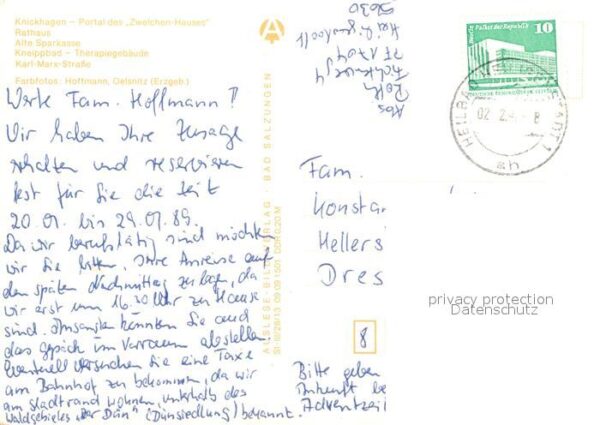 Knickhagen – Portal des „Zwelfchen-Hauses"
Rathaus
Alte Sparkasse
Kneippbad – Therapiegebäude
Karl-Marx-Straße
Farbfotos: Hoffmann, Oelsnitz (Erzgeb.)
Werte Fam. Hoffmann!
Wir haben Ihre Zusage
erhalten und reservieren
fest für Sie die Zeit
20.07. bis 29.07.89.
Da wir berufstätig sind möchten
wir Sie bitten, Ihre Anreise auf
den späten Nachmittag zu legen, da
wir erst um 16.30 Uhr zu Hause
sind. Ansonsten könnten Sie auch
das Gepäck im Vorraum abstellen.
Eventuell versuchen Sie eine Taxe
am Bahnhof zu bekommen, da wir
am Stadtrand wohnen, unterhalb des
Waldgebietes „Der Dün" (Dünsiedlung) bekannt.
AUSLESE-BILD-VERLAG · BAD SALZUNGEN
Abs
Roth
PF 1704
Heiligenstadt
5630
Berlin, Palast der Republik
10
DEUTSCHE DEMOKRATISCHE REPUBLIK
HEILBAD HEILIGENSTADT 1
ah
Fam.
Konstar
Hellers
Dres
privacy protection
Datenschutz
8
Bitte geben
Ankunft be
Adventzeil